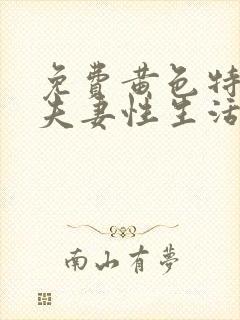 免費黄色特
夫妻性生活
南山有夢